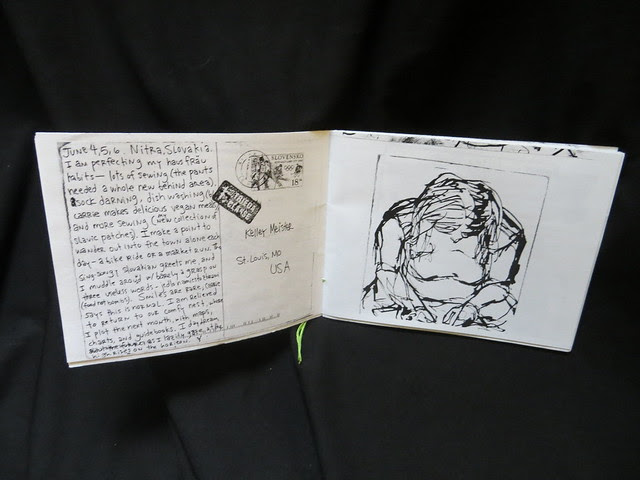 June 4, 5, 6. Nitra, Slovakia.
I am perfecting my hausfrau
habits — lots of sewing (the pants
needed a whole new behind area)
sock darning, dish washing
carrie makes delicious vegan meals
and more sewing (new collection of
slavic patches). I make a point to
wander out into the town alone each
day — a bike ride or a market run. The
sing-songy Slovakian greets me and
I muddle around w/ barely a grasp on
three useless words -
(food not bombs). Smiles are rare, carrie
says this is normal. I am relieved
to return to our comfy nest, where
I plot the next month, with maps,
charts, and guidebooks. I daydream
as I
high rises on the horizon.
SLOVENSKO
18
Keller Meister
St. Louis, MO
USA